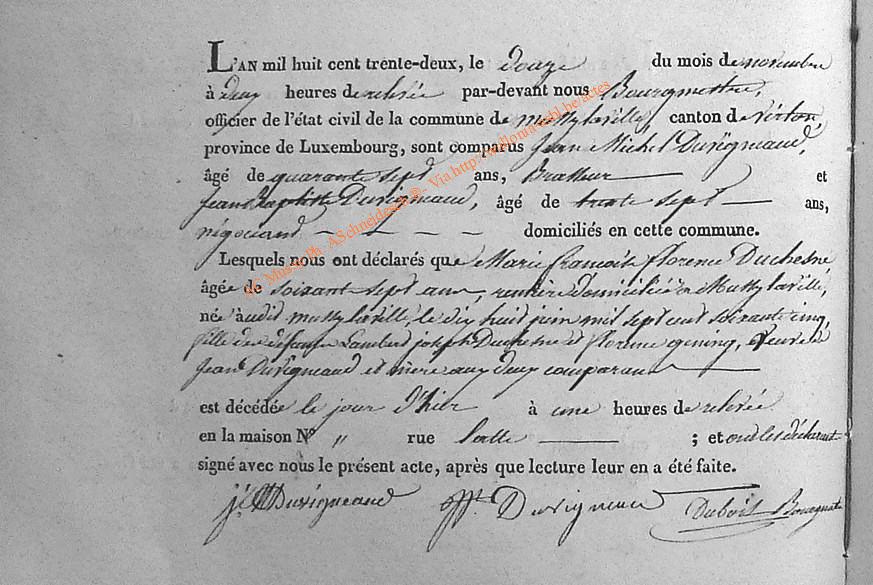 L'AN mil huit cent trente-deux, le douze du mois de novembre
à deux heures de relevée par-devant nous Bourgmestre,
officier de l'état civil de la commune de Mussylaville, canton de virton,
province de Luxembourg, sont comparus Jean Michel Duvigneaud,
âgé de quarante sept ans, Brasseur et
Jean Baptiste Duvigneaud, âgé de trente sept ans,
négociand domiciliés en cette commune.
Lesquels nous ont déclarés que Marie françoise florence Duchesne
âgée de soixant sept ans, rentière domiciliée à Mussylaville,
née audit mussylaville, le dix huit juin mil sept cent soixante cinq
fille des défunts Lambert joseph Duchesne et florence gening, veuve de
Jean Duvigneaud et mère aux deux comparans
est décédée le jour d'hier à une heures de relevée
en la maison N° " rue halle ; et ont les déclarant
signé avec nous le présent acte, après que lecture leur en a été faite.
Duvigneaud Duvigneaud Dubois Bourgmestre
Via http://wallonia-asbl.be/actes